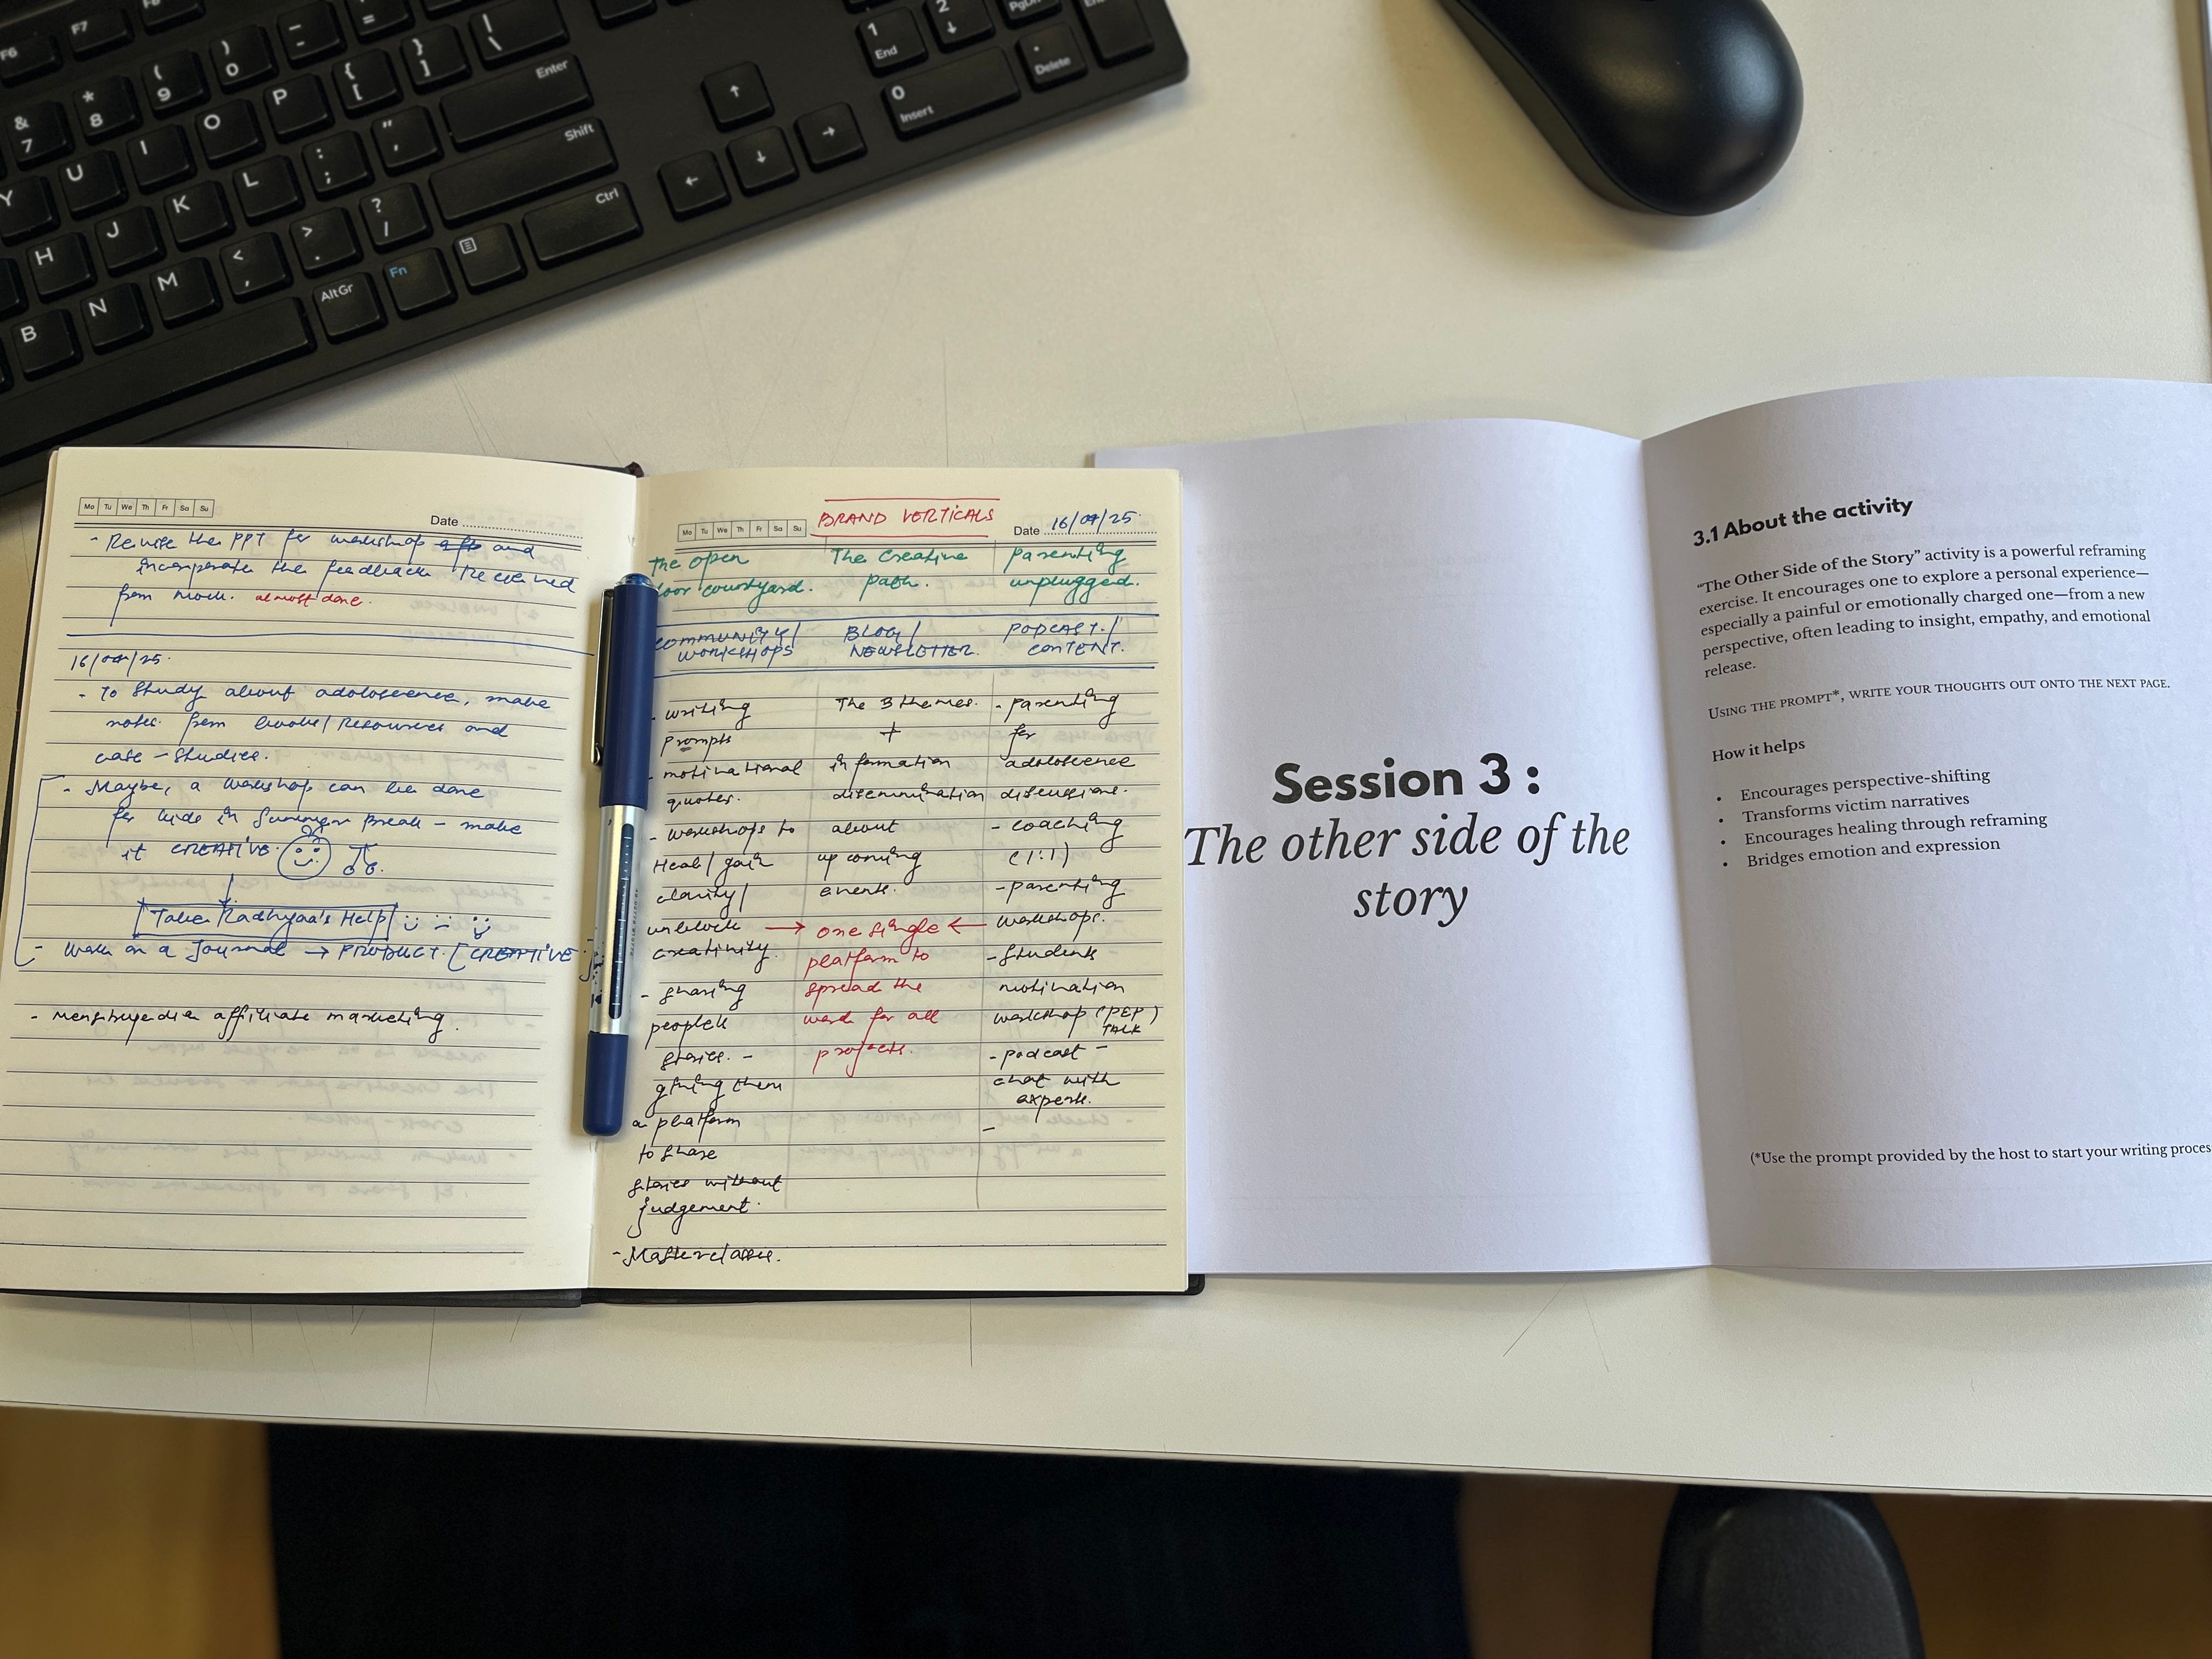 F6
F7
&
7
*
8
(
9
)
0
-
=
|
\
Y
U
I
O
P
{
[
}
]
Enter
H
J
K
L
:
;
"
'
Shift
B
N
M
<
,
>
.
?
/
Ctrl
AltGr
Fn
↑
←
↓
→
1
End
2
↓
PgDn
0
Insert
.
Delete
Mo Tu We Th Fr Sa Su
Date
- Revise the PPT for workshop and
incorporate the feedback received
from mock. almost done.
16/04/25.
- To study about adoloscence, make
notes from books/Resources and
case - studies.
- Maybe, a workshop can be done
for kids in Summer Break - make
it CREATIVE.
Take Radhyaa's Help
- Work on a Journal → PRODUCT. [CREATIVE
- affiliate marketing.
Mo Tu We Th Fr Sa Su
BRAND VERTICALS
Date 16/04/25.
the open The Creative parenting
door courtyard. path. unplugged.
COMMUNITY/ BLOG/ PODCAST/
WORKSHOPS NEWSLETTER. CONTENT.
- writing The 3 themes. - parenting
prompts + for
- motivational information adoloscence
quotes. dissemination discussions.
- workshops to about - coaching
Heal/gain upcoming (1:1)
clarity/ events. - parenting
unblock → one single ← workshops.
creativity. platform to - Students
- sharing spread the motivation
people's word for all workshop (PEP)
TALK
stories. - projects. - podcast -
giving them chat with
experts.
a platform -
to share
stories without
judgement.
- Masterclasses.
Session 3 :
The other side of the
story
3.1 About the activity
“The Other Side of the Story” activity is a powerful reframing
exercise. It encourages one to explore a personal experience—
especially a painful or emotionally charged one—from a new
perspective, often leading to insight, empathy, and emotional
release.
USING THE PROMPT*, WRITE YOUR THOUGHTS OUT ONTO THE NEXT PAGE.
How it helps
• Encourages perspective-shifting
• Transforms victim narratives
• Encourages healing through reframing
• Bridges emotion and expression
(*Use the prompt provided by the host to start your writing proces